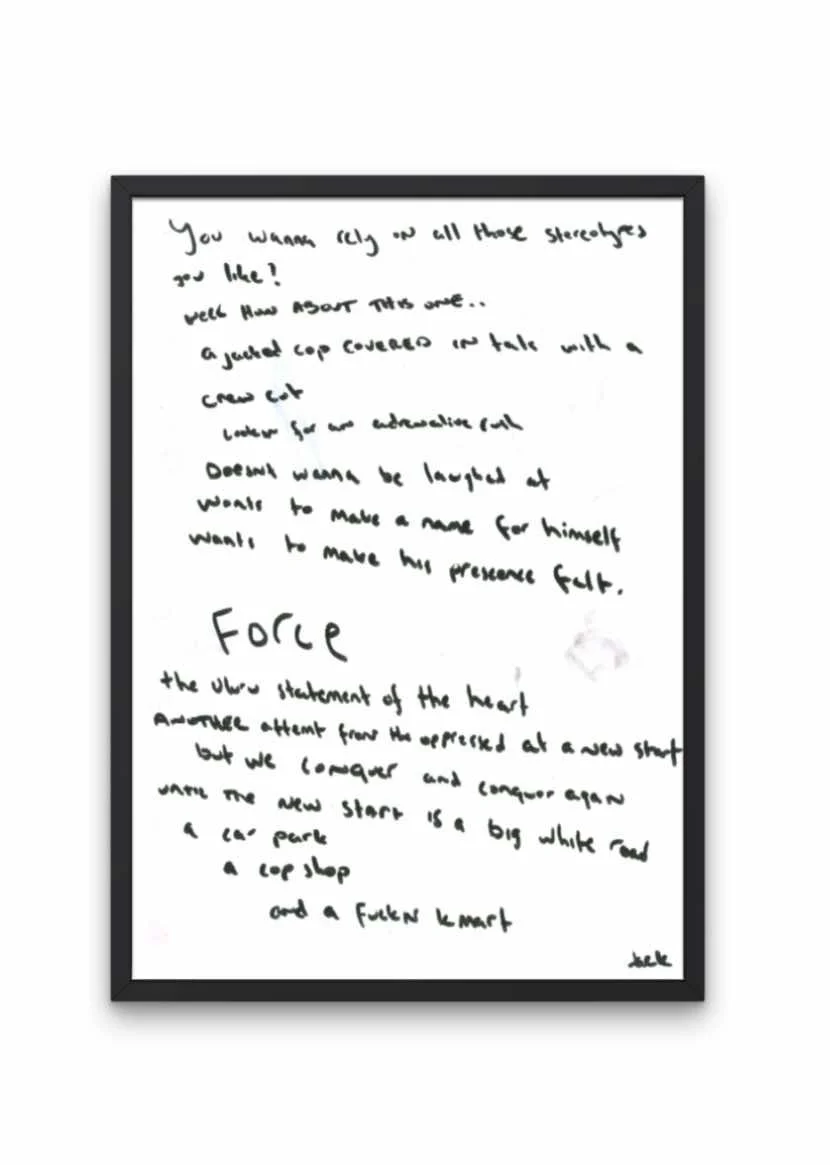 You wanna rely on all those stereotypes
you like?
well How ABOUT THIS one..
a jacked cop COVERED IN tats with a
crew cut
Lookin for an adrenaline rush
Doesnt wanna be laughed at
wants to make a name for himself
wants to make his presence felt.
Force
the uluru statement of the heart
ANOTHER attemt from the oppressed at a new start
but we conquer and conquer again
UNTIL THE NEW START is a big white road
a car park
a cop shop
and a fuckN kmart